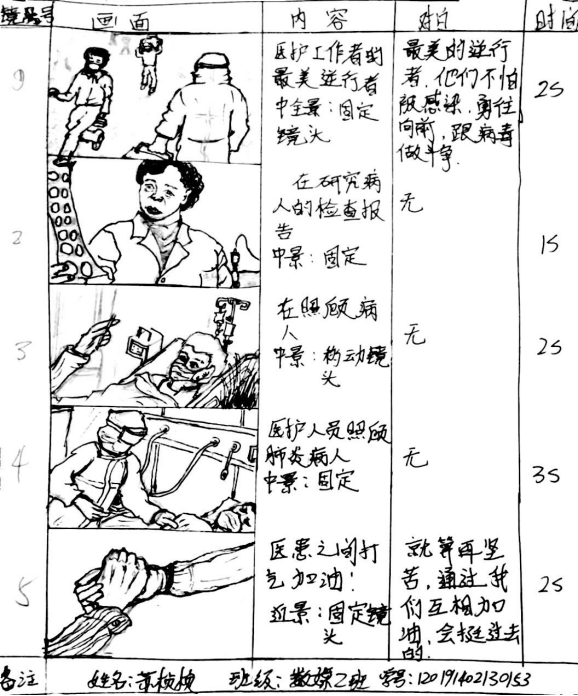 镜号 画面 内容 对白 时间
9
医护工作者的
最美逆行者
中全景:固定
镜头
最美的逆行
者,他们不怕
被感染,勇往
向前,跟病毒
做斗争.
2S
2
在研究病
人的检查报
告
中景:固定
无
1S
3
在照顾病
人
中景:移动镜
头
无
2S
4
医护人员照顾
肺炎病人
中景:固定
无
3S
5
医患之间打
气加油!
近景:固定镜
头
就算再坚
苦,通过我
们互相加
油,会挺过去
的.
2S
备注 姓名: 班级:数媒2班 学号:120191402130153